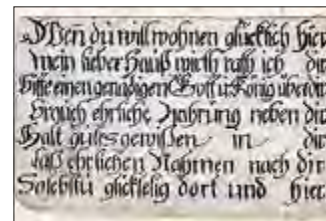 Wen du will wohnen glücklich hier
mein lieber Hauß wirth rath ich dir
einen genädigen Gott u König über dir
brauch ehrliche Nahrung neben dir
Halt gutes gewißen in dir
laß ehrlichen Nahmen nach dir
So lebstu glückselig dort und hier